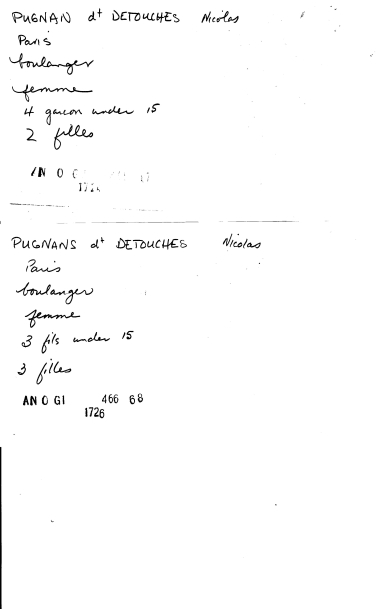 PUGNAN dt DETOUCHES Nicolas
Paris
boulanger
femme
4 garcon under 15
2 filles
AN O G
172
PUGNANS dt DETOUCHES Nicolas
Paris
boulanger
femme
3 fils under 15
3 filles
AN O G1 466 68
1726